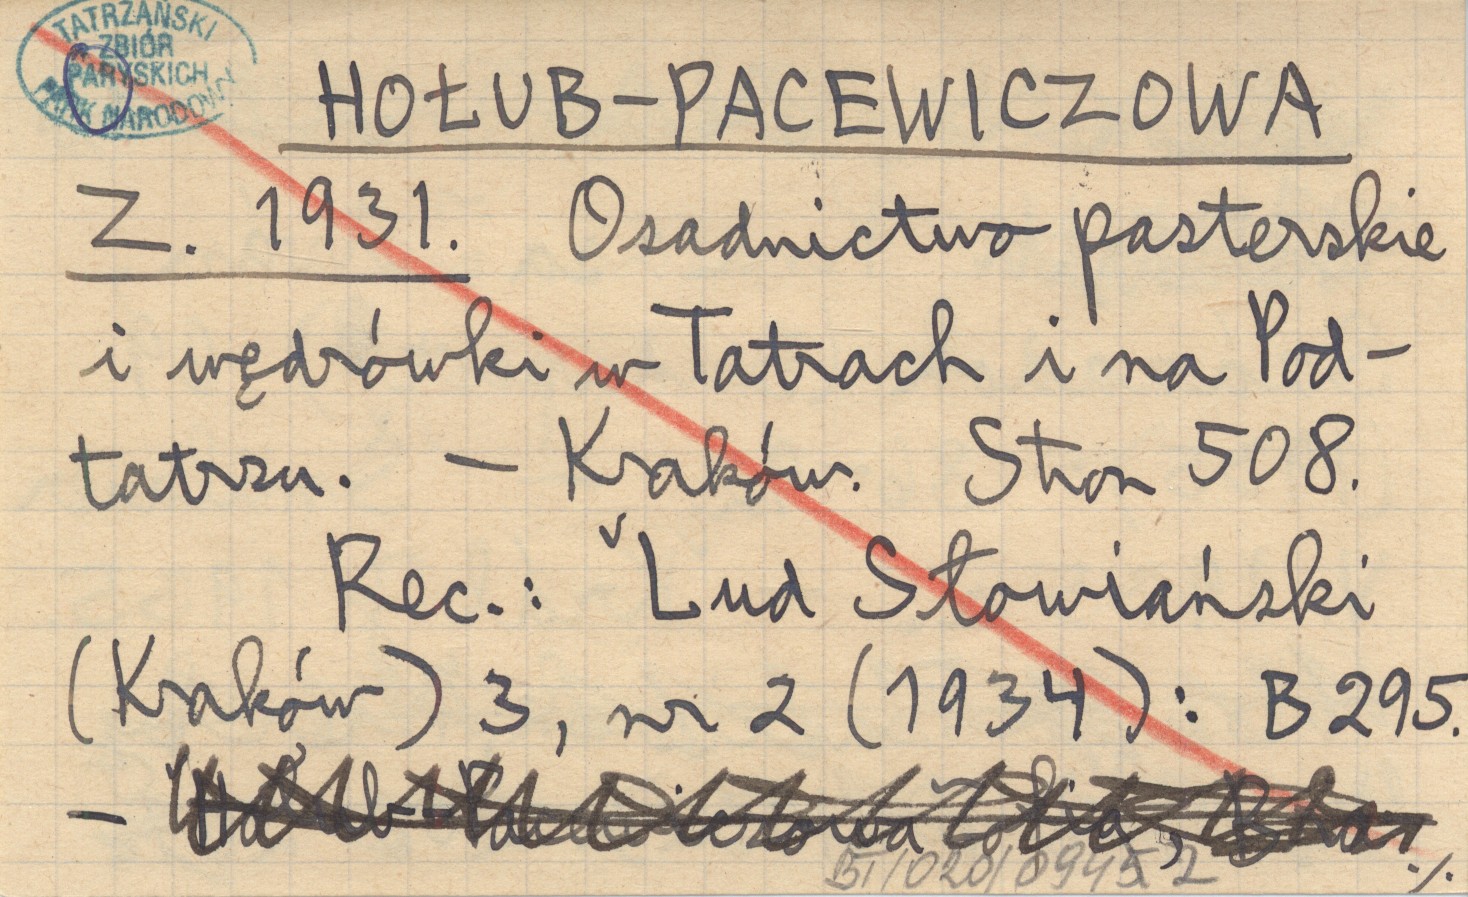 TATRZAŃSKI
ZBIÓR
PARYSKICH
PARK NARODOWY
HOŁUB-PACEWICZOWA
Z. 1931. Osadnictwo pasterskie
i wędrówki w Tatrach i na Pod-
tatrzu. — Kraków. Stron 508.
Rec.: Lud Słowiański
(Kraków) 3, nr 2 (1934): B 295.
—
./.